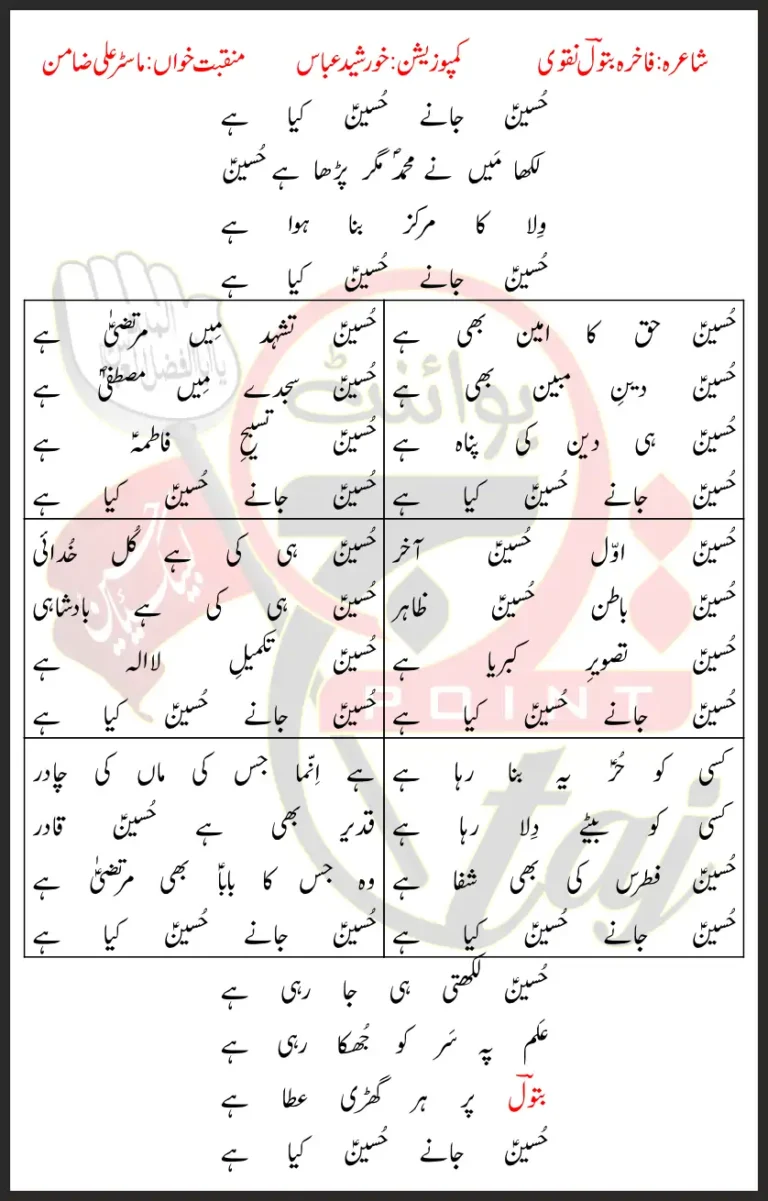 شاعرہ: فاخرہ بتولؔ نقوی کمپوزیشن: خورشید عباس منقبت خواں: ماسٹر علی ضامن
حُسینؑ جانے حُسینؑ کیا ہے
لکھا مَیں نے محمدؐ مگر پڑھا ہے حُسینؑ
وِلا کا مرکز بنا ہوا ہے
حُسینؑ جانے حُسینؑ کیا ہے
حُسینؑ حق کا امین بھی ہے
حُسینؑ دینِ مبین بھی ہے
حُسینؑ ہی دین کی پناہ ہے
حُسینؑ جانے حُسینؑ کیا ہے
حُسینؑ تشہد مِیں مرتضیٰؑ ہے
حُسینؑ سجدے مِیں مصطفیٰؐ ہے
حُسینؑ تسبیحِ فاطمہؑ ہے
حُسینؑ جانے حُسینؑ کیا ہے
حُسینؑ اوّل حُسینؑ آخر
حُسینؑ باطن حُسینؑ ظاہر
حُسینؑ تصویرِ کبریا ہے
حُسینؑ جانے حُسینؑ کیا ہے
حُسینؑ ہی کی ہے کُل خُدائی
حُسینؑ ہی کی ہے بادشاہی
حُسینؑ تکمیلِ لاالہ ہے
حُسینؑ جانے حُسینؑ کیا ہے
کسی کو حُرؑ یہ بنا رہا ہے
کسی کو بیٹے دِلا رہا ہے
حُسینؑ فطرس کی بھی شفا ہے
حُسینؑ جانے حُسینؑ کیا ہے
ہے اِنّما جس کی ماں کی چادر
قدیر بھی ہے حُسینؑ قادر
وہ جس کا باباؑ بھی مرتضیٰؑ ہے
حُسینؑ جانے حُسینؑ کیا ہے
حُسینؑ لکھتی ہی جا رہی ہے
عَلم پہ سَر کو جُھکا رہی ہے
بتولؔ پر ہر گھڑی عطا ہے
حُسینؑ جانے حُسینؑ کیا ہے
پوائنٹ
POINT
taj